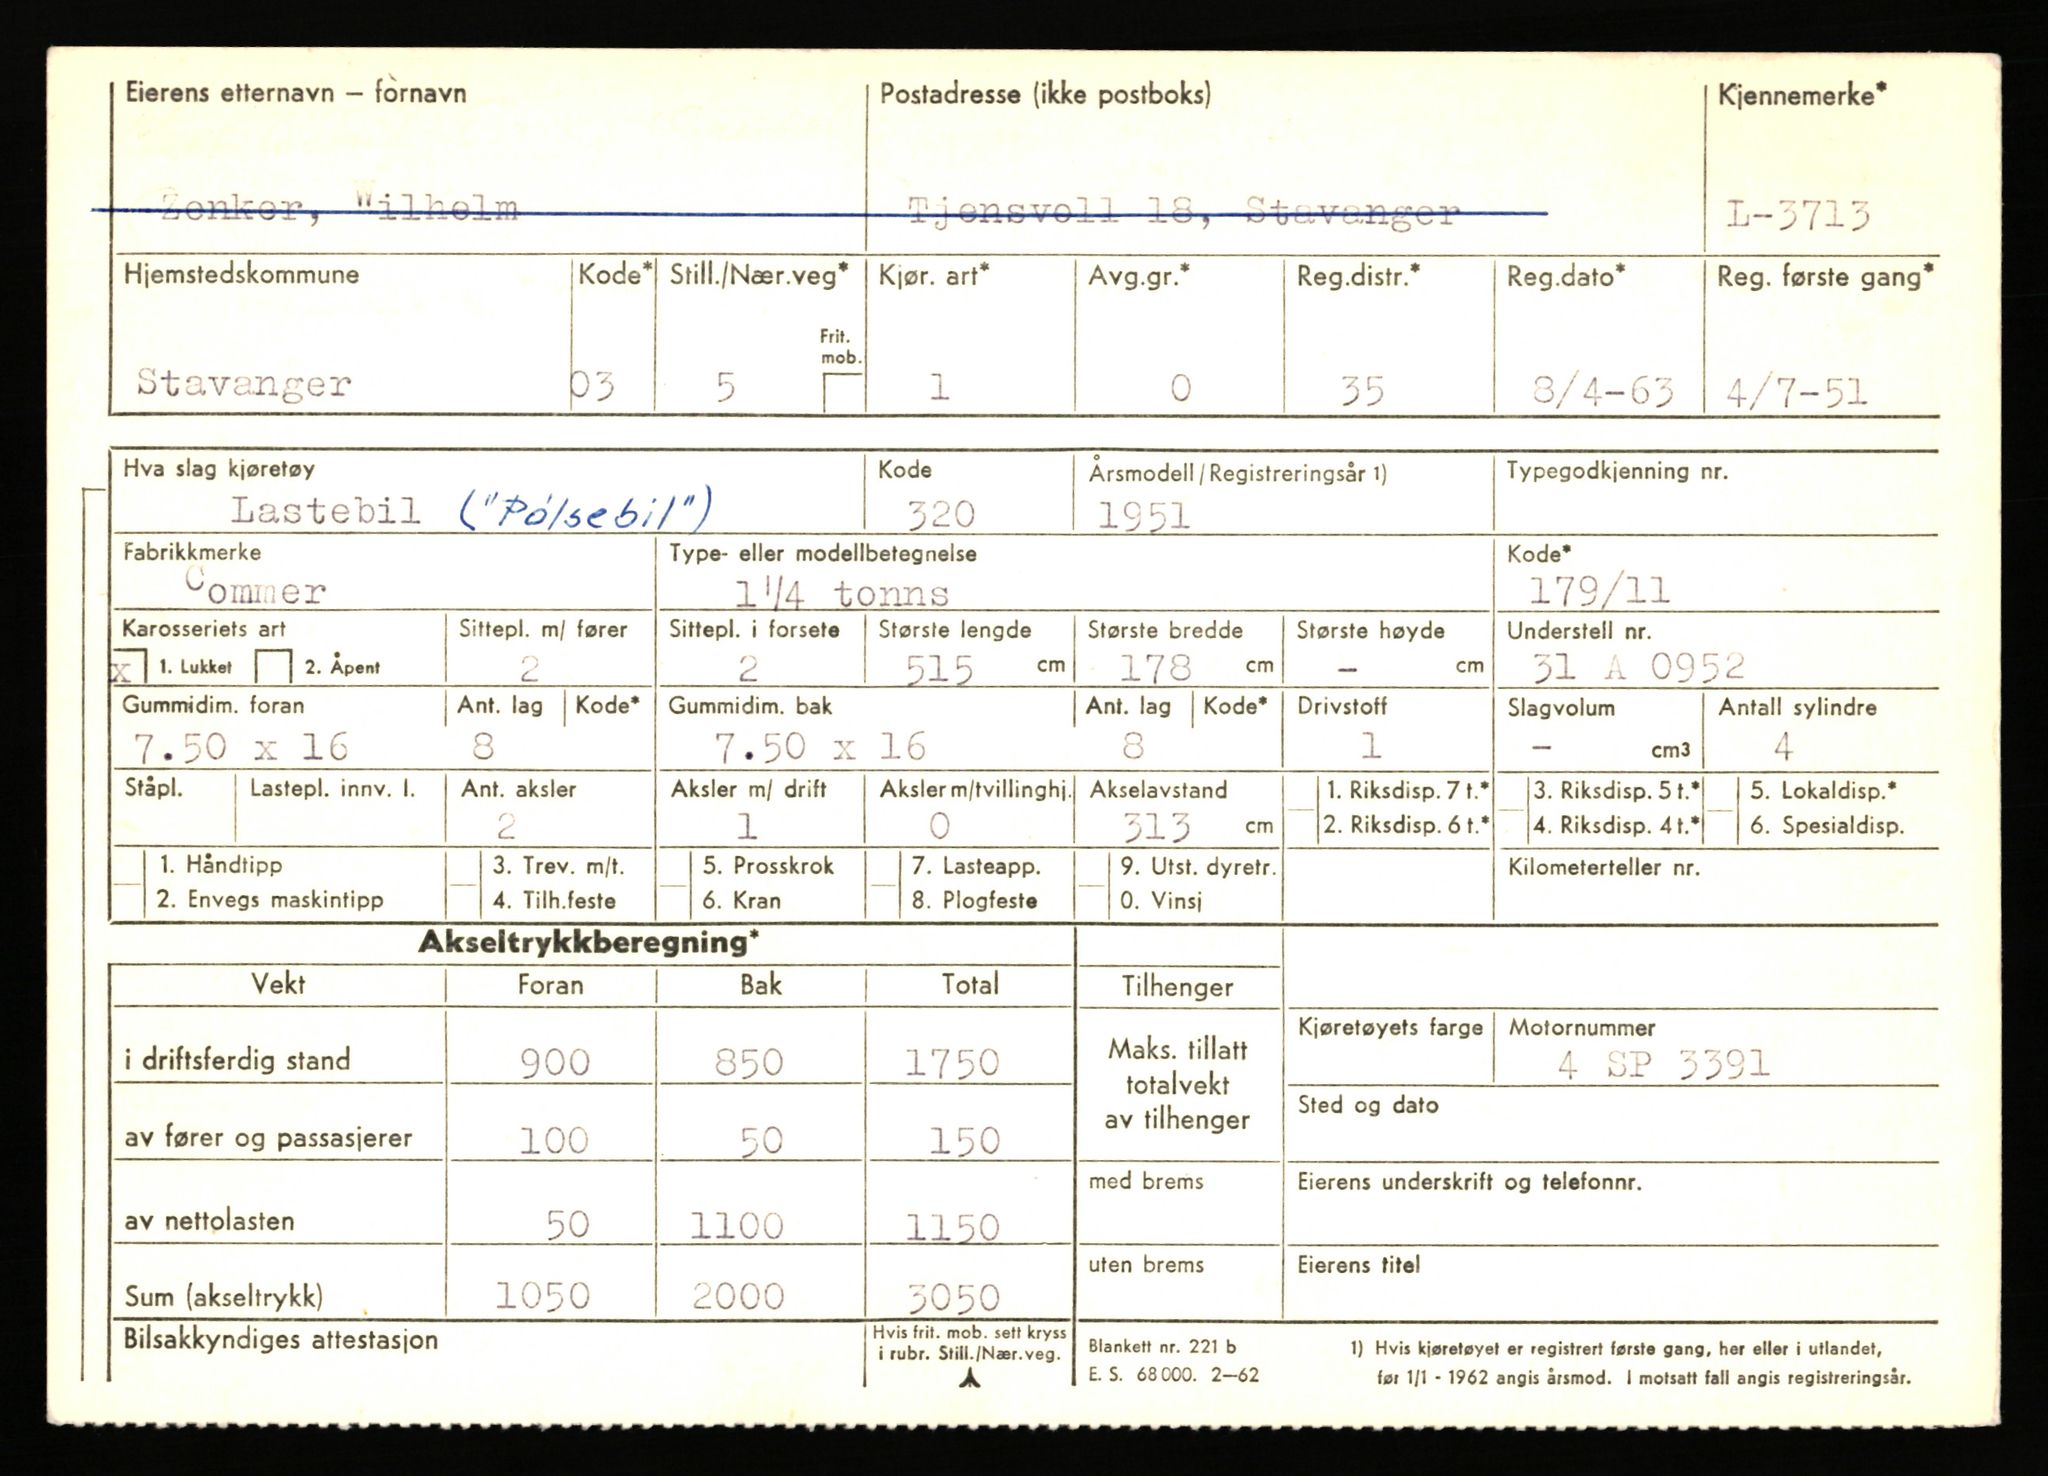 Eierens etternavn – fornavn Postadresse (ikke postboks) Kjennemerke*
Zenker, Wilhelm Tjensvoll 18, Stavanger L-3713
Hjemstedskommune Kode* Still./Nær.veg* Kjør. art* Avg.gr.* Reg.distr.* Reg.dato* Reg. første gang*
Frit. mob.
Stavanger 03 5 1 0 35 8/4-63 4/7-51
Hva slag kjøretøy Kode Årsmodell/Registreringsår 1) Typegodkjenning nr.
Lastebil ("Pólsebil") 320 1951
Fabrikkmerke Type- eller modellbetegnelse Kode*
Commer 1 1/4 tonns 179/11
Karosseriets art Sittepl. m/ fører Sittepl. i forsete Største lengde Største bredde Største høyde Understell nr.
x 1. Lukket 2. Åpent 2 2 515 cm 178 cm - cm 31 A 0952
Gummidim. foran Ant. lag Kode* Gummidim. bak Ant. lag Kode* Drivstoff Slagvolum Antall sylindre
7.50 x 16 8 7.50 x 16 8 1 - cm3 4
Ståpl. Lastepl. innv. l. Ant. aksler Aksler m/ drift Aksler m/tvillinghj. Akselavstand 1. Riksdisp. 7 t.* 3. Riksdisp. 5 t.* 5. Lokaldisp.*
2 1 0 313 cm 2. Riksdisp. 6 t.* 4. Riksdisp. 4 t.* 6. Spesialdisp.
1. Håndtipp 3. Trev. m/t. 5. Prosskrok 7. Lasteapp. 9. Utst. dyretr. Kilometerteller nr.
2. Envegs maskintipp 4. Tilh.feste 6. Kran 8. Plogfeste 0. Vinsj
Akseltrykkberegning*
Vekt Foran Bak Total Tilhenger
Kjøretøyets farge Motornummer
i driftsferdig stand 900 850 1750 Maks. tillatt totalvekt av tilhenger 4 SP 3391
Sted og dato
av fører og passasjerer 100 50 150
med brems Eierens underskrift og telefonnr.
av nettolasten 50 1100 1150
uten brems Eierens titel
Sum (akseltrykk) 1050 2000 3050
Bilsakkyndiges attestasjon Hvis frit. mob. sett kryss i rubr. Still./Nær.veg.
Blankett nr. 221 b 1) Hvis kjøretøyet er registrert første gang, her eller i utlandet,
E. S. 68 000. 2–62 før 1/1 - 1962 angis årsmod. I motsatt fall angis registreringsår.